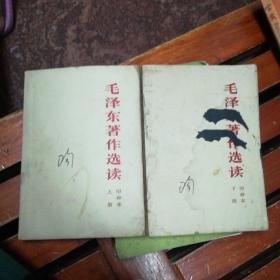 毛泽东著作选读
甲种本
上册
毛泽 著作选读
甲种本
下册